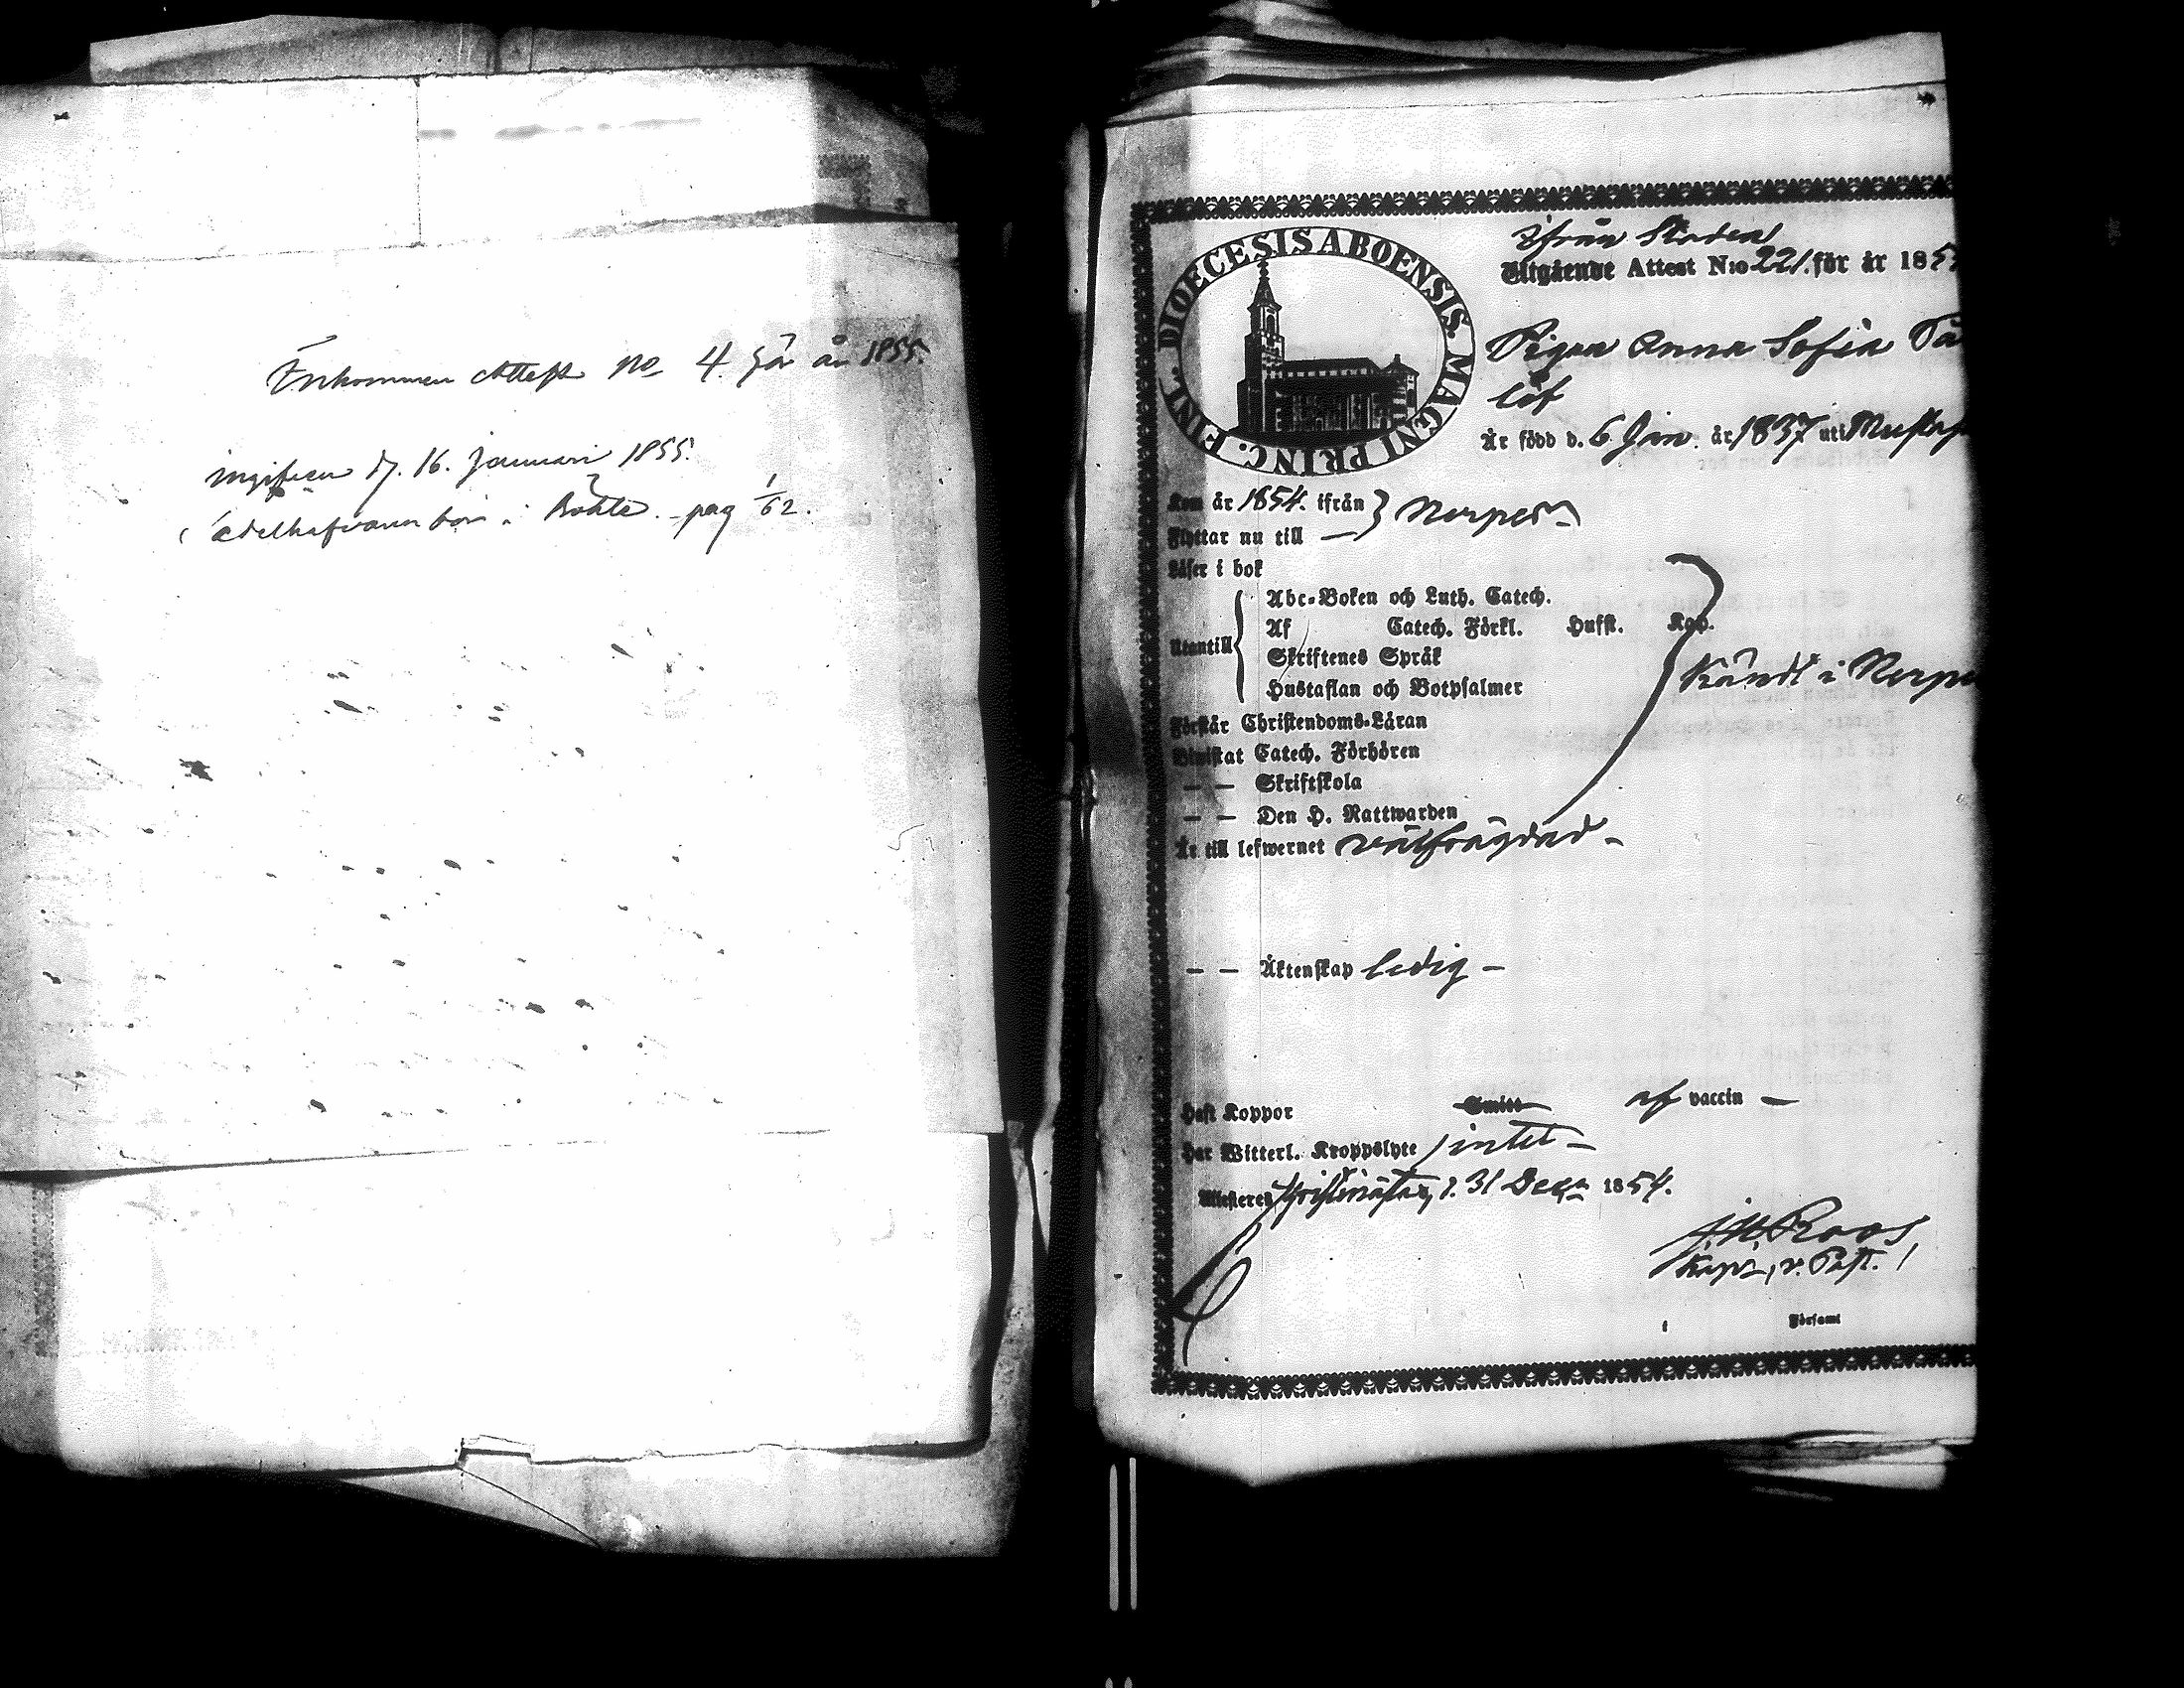 Inkommen Attest No 4. för år 1855.
ingifven d. 16. Januari 1855.
i Böhle - pag 1/62.
DIOECESIS ABOENSIS. MAGNI PRINC. FINL.
ifrån Staden
Utgående Attest N:o 221. för år 185
Pigan Anna Sofia
löf
År född d. 6 Jan. år 1837 uti
Kom år 1854. ifrån } Nerpes
Flyttar nu till —
Läser i bok
Abc-Boken och Luth. Catech.
Af Catech. Förkl. Husst. Kap.
Utantill
Skriftenes Språk
Kändt i Nerpe
Hustaflan och Botpsalmer
Förstår Christendoms-Läran
Biwistat Catech. Förhören
— — Skriftskola
— — Den H. Nattwarden
Är till lefwernet välfrägdad -
— — Äktenskap ledig -
Haft Koppor Smitt af vaccin —
Har Witterl. Kroppslyte intet -
Attesteres Christinæstad, d. 31 Decr 1854.
J. W. Roos
Kapn, v. Past.
i Församl